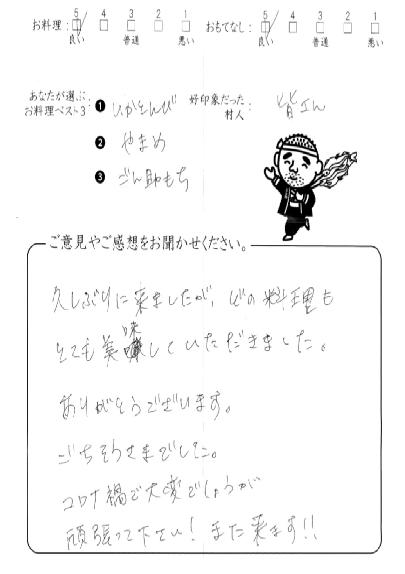 お料理: 5 4 3 2 1
良い 普通 悪い
おもてなし: 5 4 3 2 1
良い 普通 悪い
あなたが選ぶ
お料理ベスト3:
❶ いかとんび
❷ やまめ
❸ ごん助もち
好印象だった
村人: 皆さん
ご意見やご感想をお聞かせください。
久しぶりに来ましたが、どの料理も
とても美味していただきました。
ありがとうございます。
ごちそうさまでした。
コロナ禍で大変でしょうが
頑張って下さい!また来ます!!